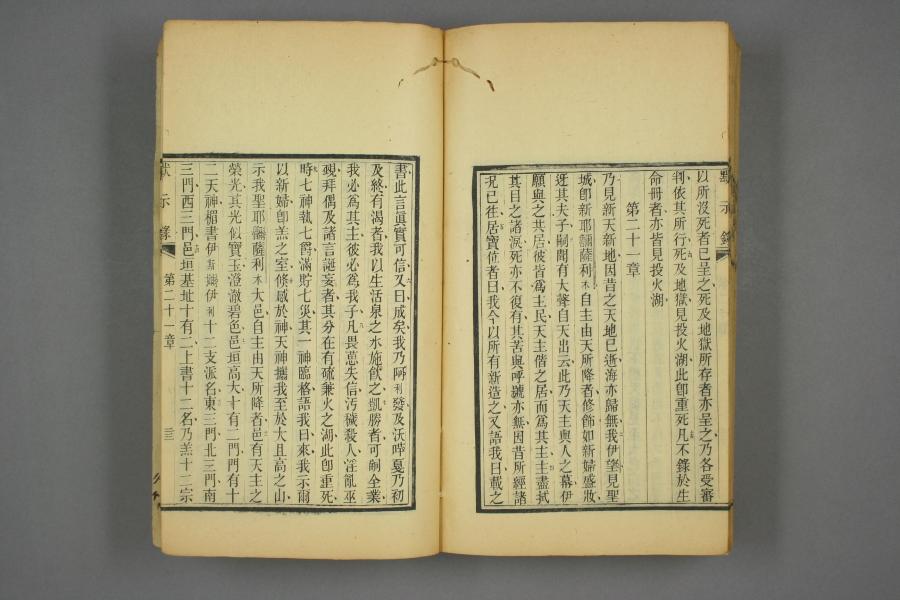 默示錄
以所沒死者已呈之死及地獄所存者亦呈之乃各受審
判依其所行死及地獄見投火湖此卽重死凡不錄於生
命冊者亦皆見投火湖
第二十一章
乃見新天新地因昔之天地已逝海亦歸無我伊望見聖
城卽新耶 薩利 自主由天所降者修飾如新婦盛妝
迓其夫子嗣聞有大聲自天出云此乃天主與人之幕伊
願與之共居彼皆為主民天主偕之居而為其主主盡拭
其目之諸淚死亦不復有其苦與呼號亦無因昔所經諸
況已往居寶位者曰我今以所有新造之又語我曰載之
書此言眞實可信又曰成矣我乃 發及沃 戞乃初
及終有渴者我以生活泉之水施飲之凱勝者可嗣全業
我必為其主彼必為我子凡畏葸失信汚穢殺人淫亂巫
覡拜偶及諸言誕妄者其分在有硫兼火之湖此卽重死
時七神執七爵滿貯七災其一神臨格語我曰來我示爾
以新婦卽羔之室修感於神天神攜我至於大且高之山
示我聖耶 薩利 大邑自主由天所降者邑有天主之
榮光其光似寶玉澄澈碧色邑垣高大十有二門門有十
二天神楣書伊 伊 十二支派名東三門北三門南
三門西三門邑垣基址十有二上書十二名乃羔十二宗
默示錄 第二十一章